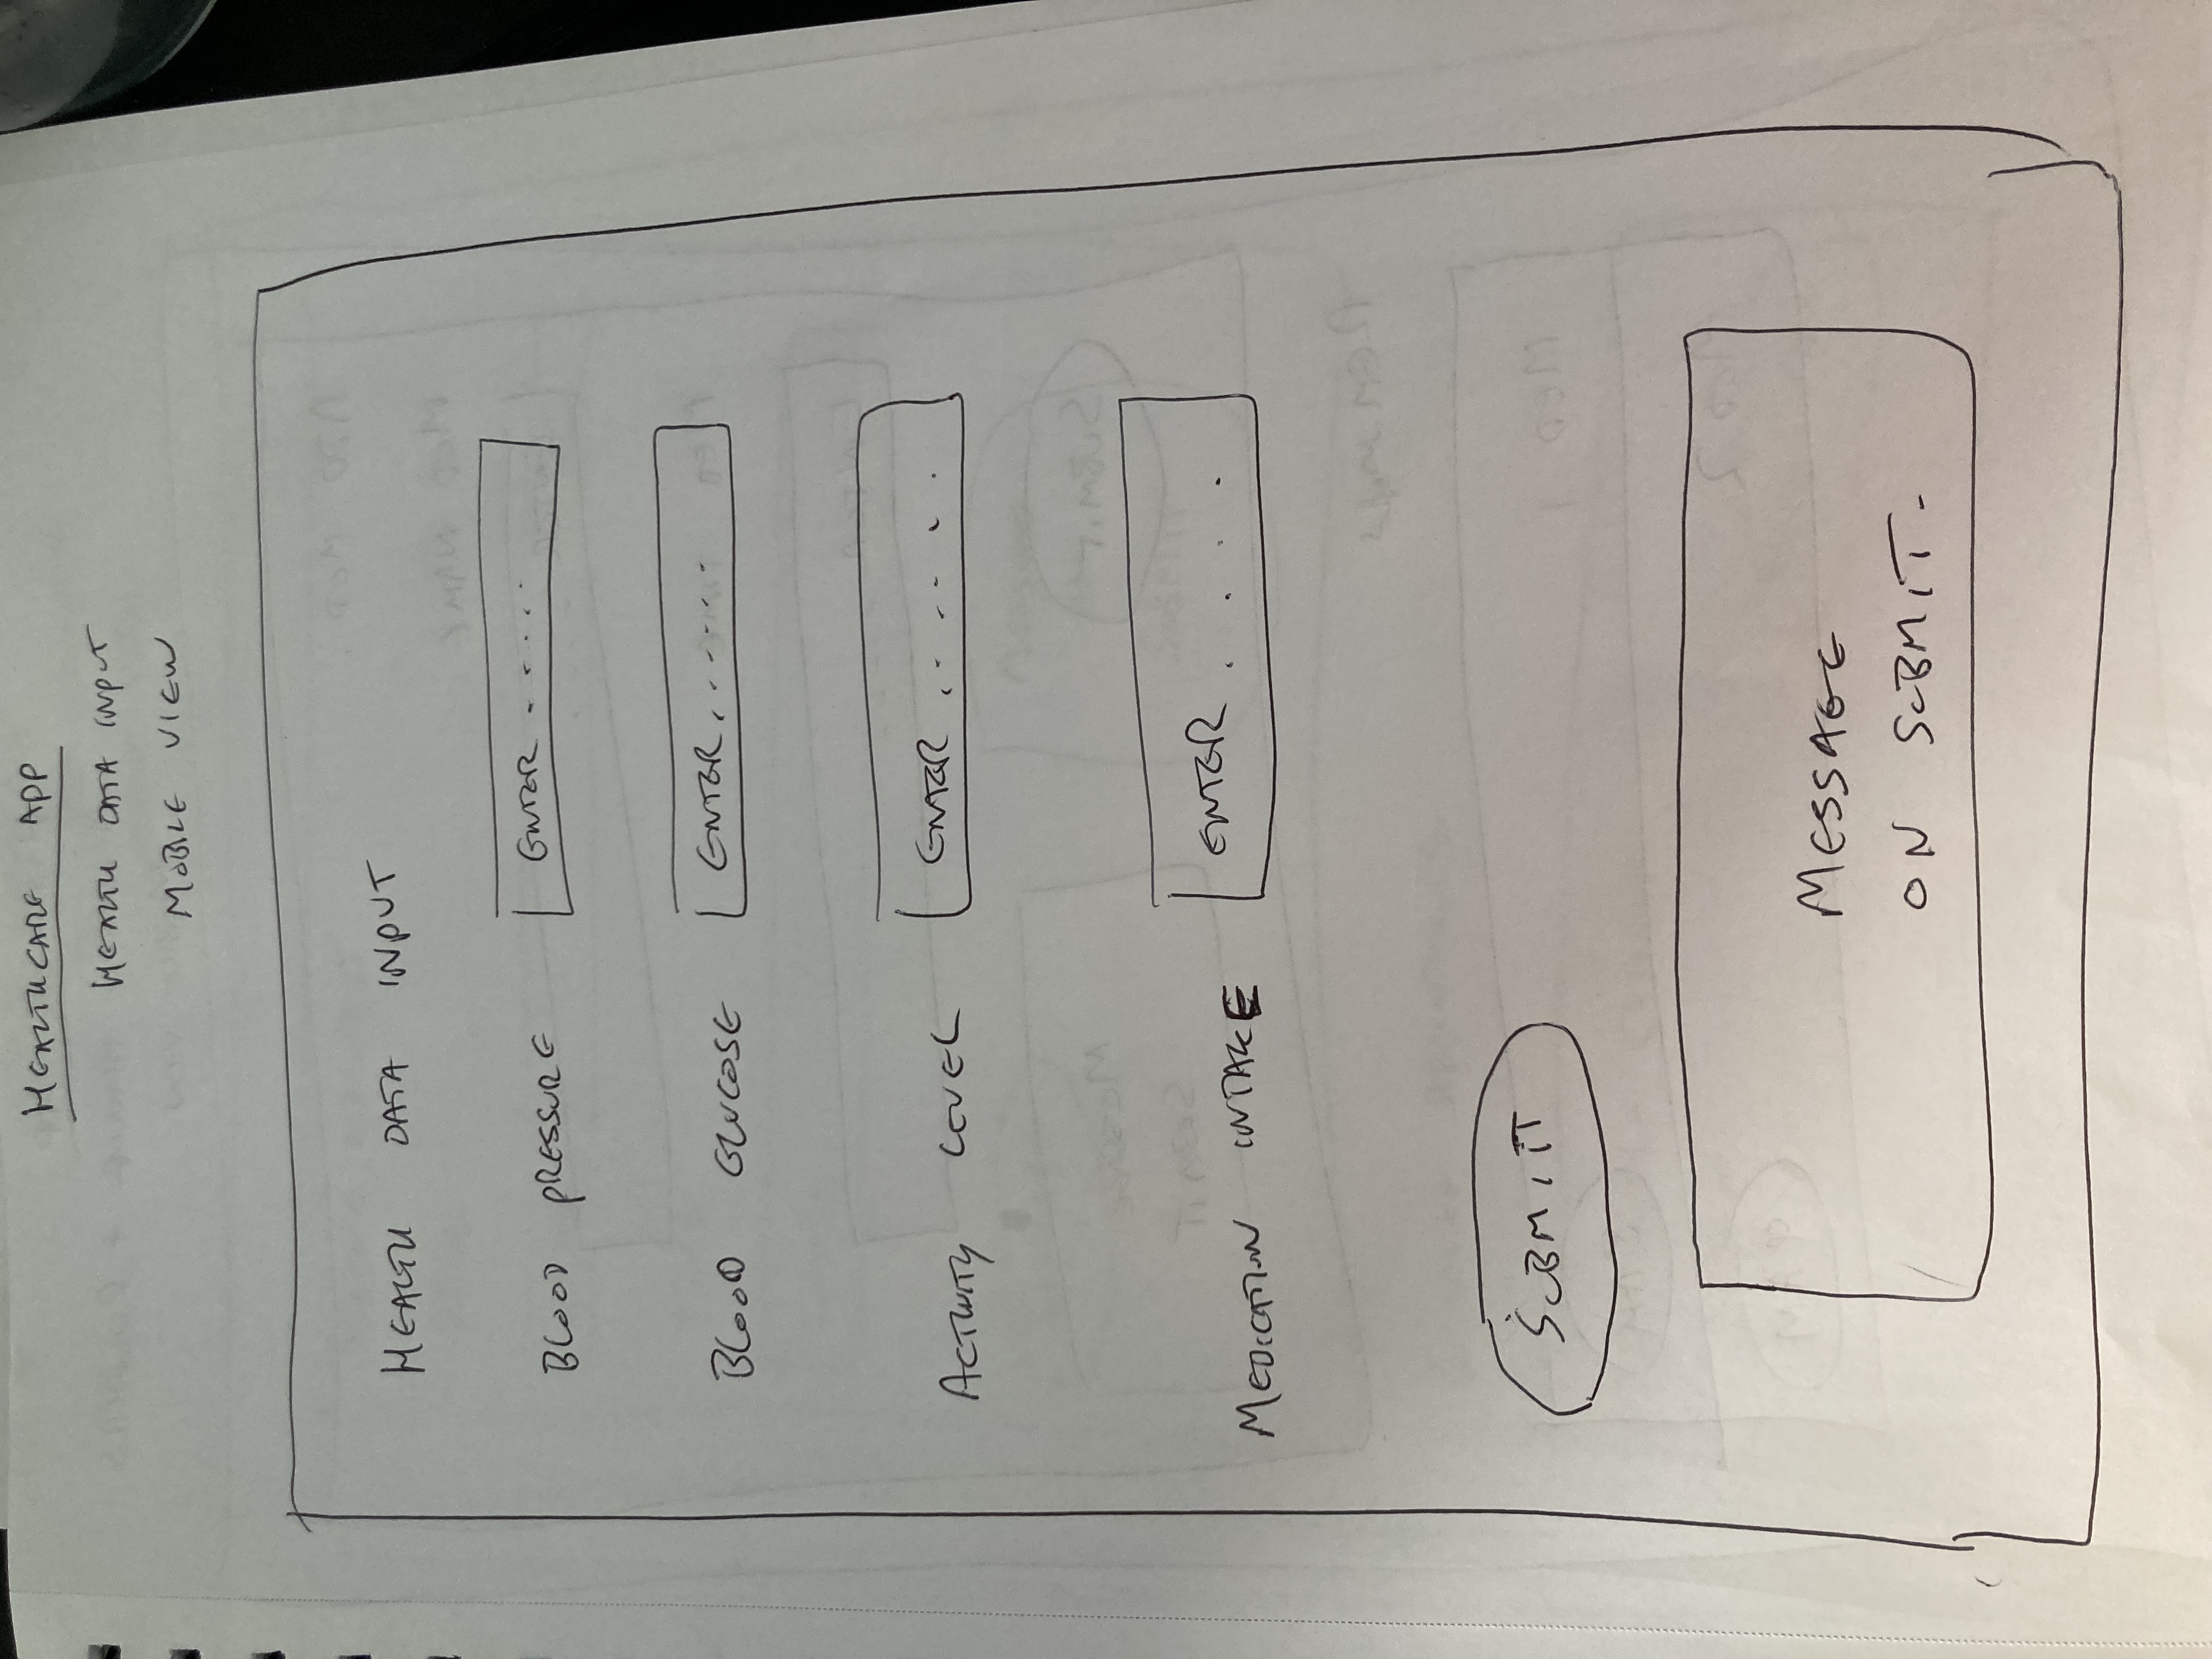 HEALTHCARE APP
HEALTH DATA INPUT
MOBILE VIEW
HEALTH DATA INPUT
BLOOD PRESSURE ENTER .....
BLOOD GLUCOSE ENTER ......
ACTIVITY LEVEL ENTER ......
MEDICATION INTAKE ENTER ....
SUBMIT
MESSAGE
ON SUBMIT.